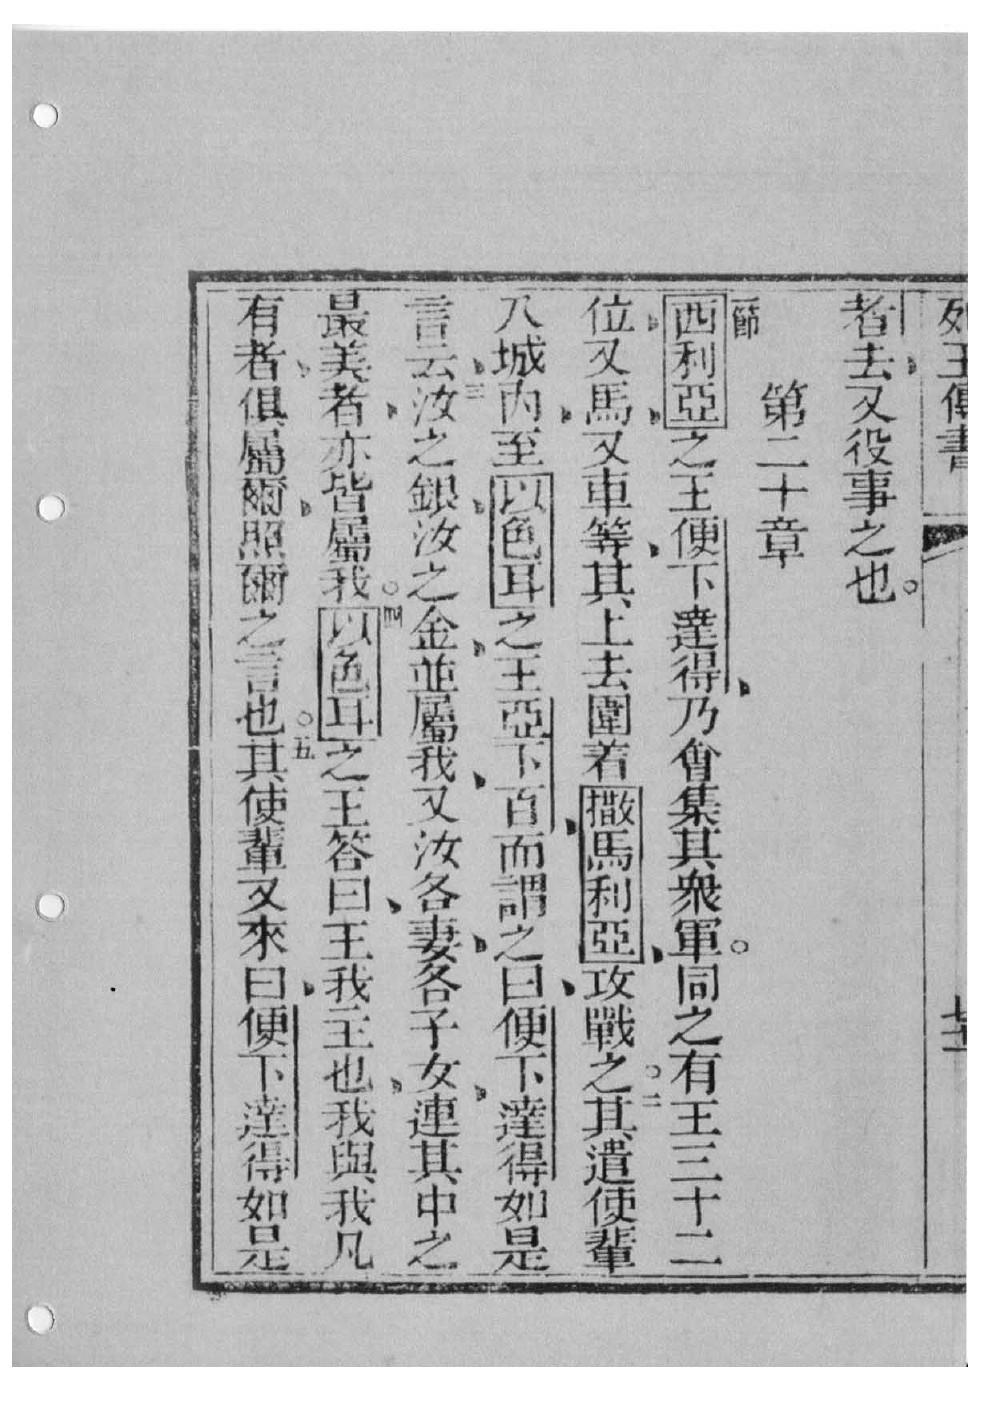 列王傳書
者去又役事之也。
第二十章
一節
西利亞之王便下達得乃會集其衆軍。同之有王三十二
位又馬又車等其上去圍着撒馬利亞攻戰之。二其遣使輩
入城內至以色耳之王亞下百而謂之曰便下達得如是
言云三汝之銀汝之金並屬我又汝各妻各子女連其中之
最美者亦皆屬我。四以色耳之王答曰王我主也我與我凡
有者俱屬爾照爾之言也。五其使輩又來曰便下達得如是